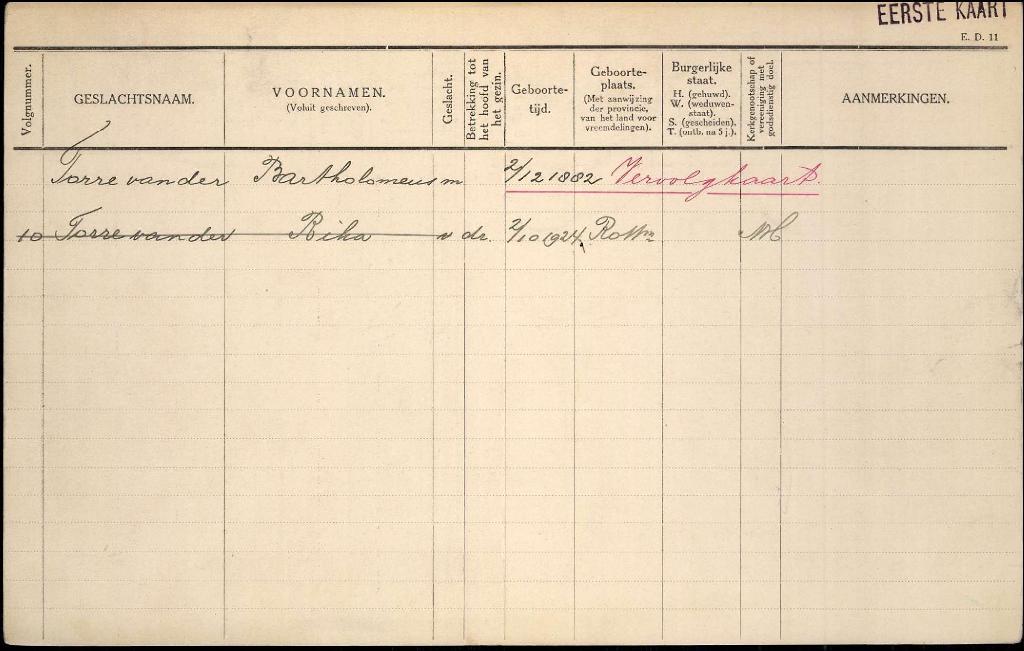 EERSTE KAART
E. D. 11
Volgnummer.
GESLACHTSNAAM.
VOORNAMEN.
(Voluit geschreven).
Geslacht.
Betrekking tot
het hoofd van
het gezin.
Geboorte-
tijd.
Geboorte-
plaats.
(Met aanwijzing
der provincie,
van het land voor
vreemdelingen).
Burgerlijke
staat.
H. (gehuwd).
W. (weduwen-
staat).
S. (gescheiden).
T. (ontb. na 5 j.).
Kerkgenootschap of
vereeniging met
godsdienstig doel.
AANMERKINGEN.
Torre van der Bartholomeus m 2/12 1882 Vervolgkaart.
10 Torre van der Rika v dr. 2/10 1924 Rottm NH